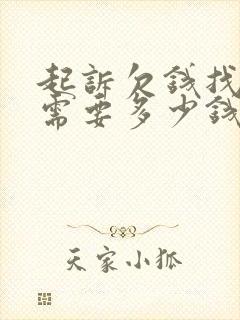 起訴欠錢找
需要多少錢
天家小狐